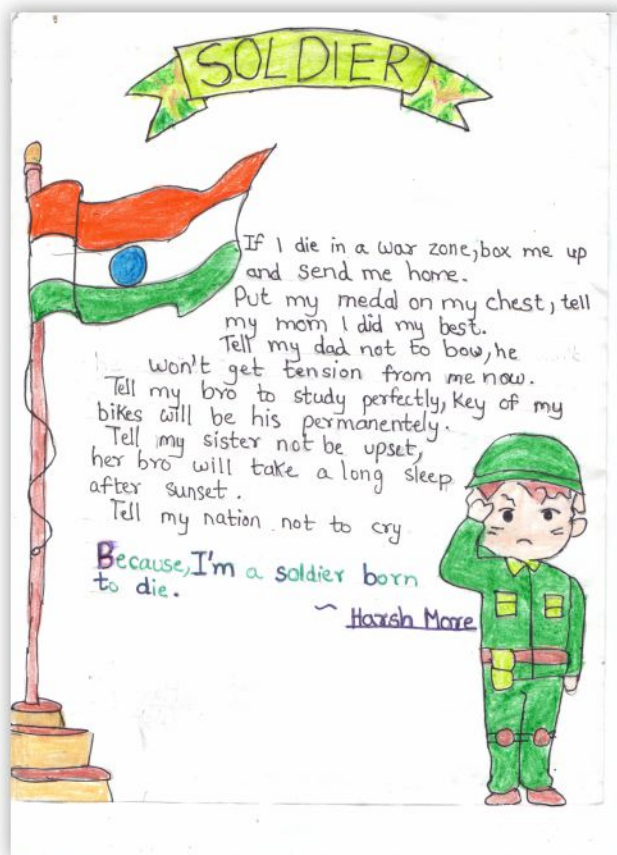 SOLDIER
If I die in a war zone, box me up
and send me home.
Put my medal on my chest, tell
my mom I did my best.
Tell my dad not to bow, he
won't get tension from me now.
Tell my bro to study perfectly, Key of my
bikes will be his permanentely.
Tell my sister not be upset,
her bro will take a long sleep
after sunset.
Tell my nation not to cry
Because, I'm a soldier born
to die.
~ Harsh More